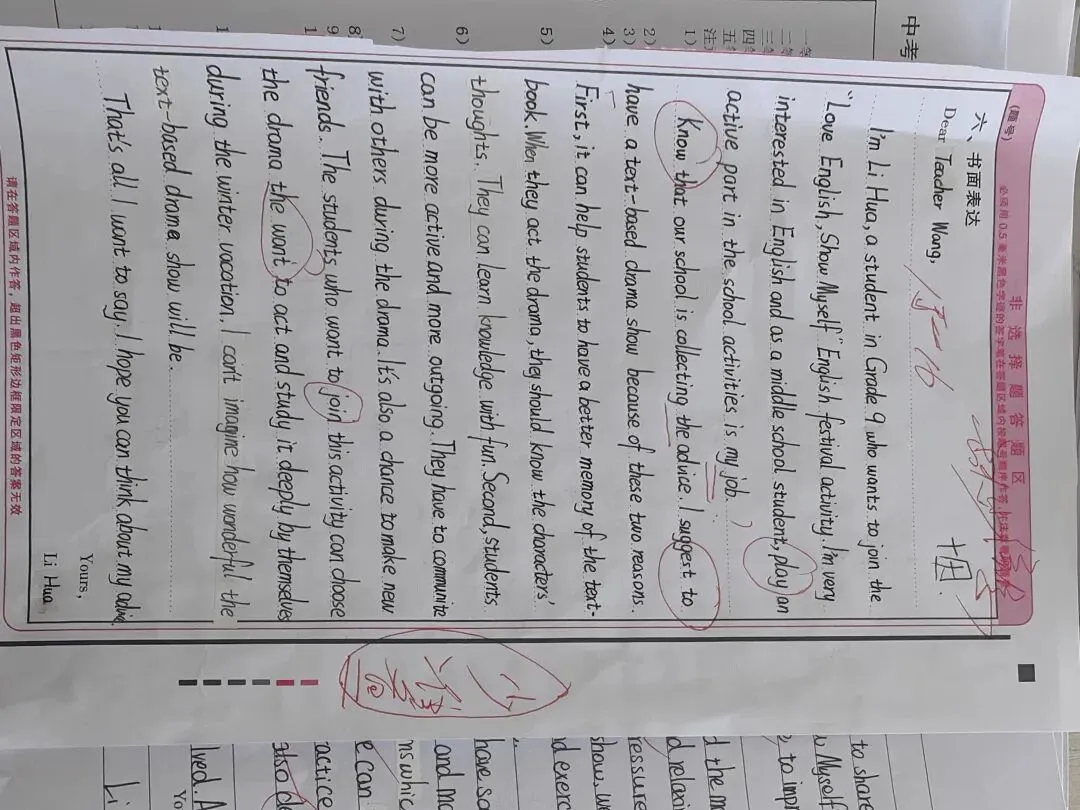 中考
非选择题答题区
(题号)
六、书面表达
Dear Teacher Wang,
I'm Li Hua, a student in Grade 9 who wants to join the
"Love English, Show Myself" English festival activity. I'm very
interested in English and as a middle school student, play an
active part in the school activities is my job.
Know that our school is collecting the advice. I suggest to
have a text-based drama show because of these two reasons.
First, it can help students to have a better memory of the text-
book. When they act the drama, they should know the characters'
thoughts. They can learn knowledge with fun. Second, students
can be more active and more outgoing. They have to communite
with others during the drama. It's also a chance to make new
friends. The students who want to join this activity can choose
the drama the want to act and study it deeply by themselves
during the winter vacation. I can't imagine how wonderful the
text-based drama show will be.
That's all I want to say. I hope you can think about my advice.
Yours,
Li Hua
请在答题区域内作答,超出黑色矩形边框限定区域的答案无效
1)
2)
3)
4)
5)
6)
7)
8
9
1
1
to share
Myself
to imp
d the m
d relaxi
ressure
show, w
d exerc
have so
and mo
ns whic
e can
actice
also de
lved. A
Yo
Li